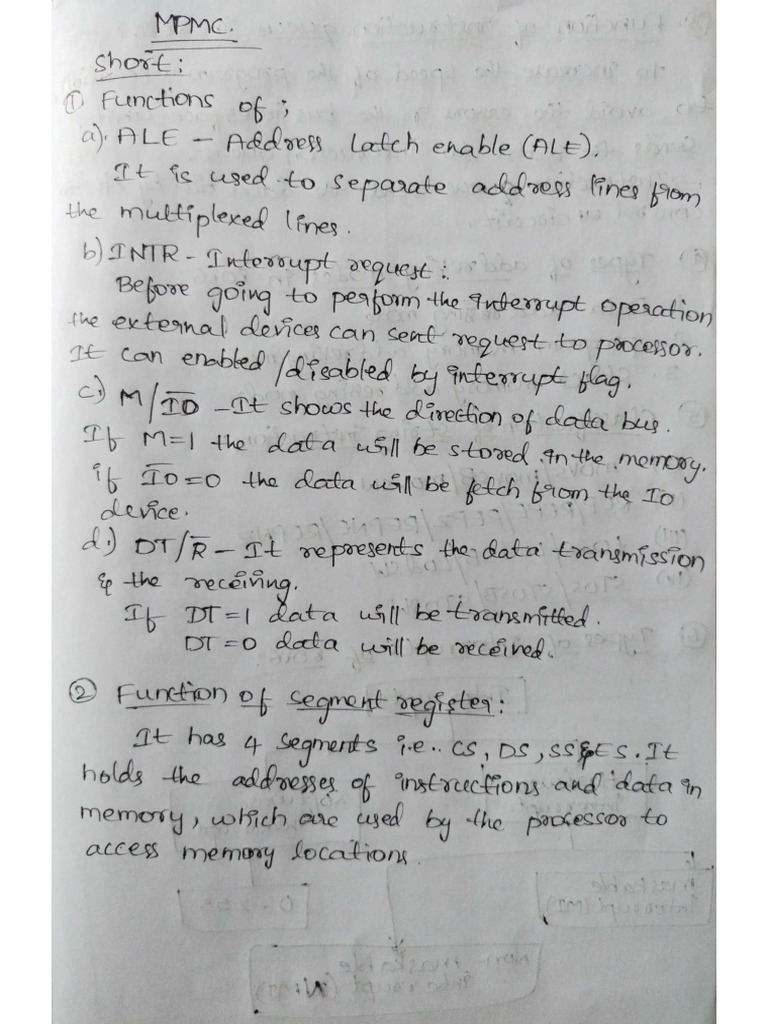 MPMC.
Short:
① Functions of;
a). ALE - Address Latch enable (ALE).
It is used to separate address lines from
the multiplexed lines.
b) INTR - Interrupt request:
Before going to perform the interrupt operation
the external devices can sent request to processor.
It can enabled/disabled by interrupt flag.
c) M/I̅O̅ - It shows the direction of data bus.
If M=1 the data will be stored in the memory.
if I̅O̅=0 the data will be fetch from the IO
device.
d.) DT/R̅ - It represents the data transmission
& the receiving.
If DT=1 data will be transmitted.
DT=0 data will be received.
② Function of segment register:
It has 4 segments i.e.. CS, DS, SS & ES. It
holds the addresses of instructions and data in
memory, which are used by the processor to
access memory locations.